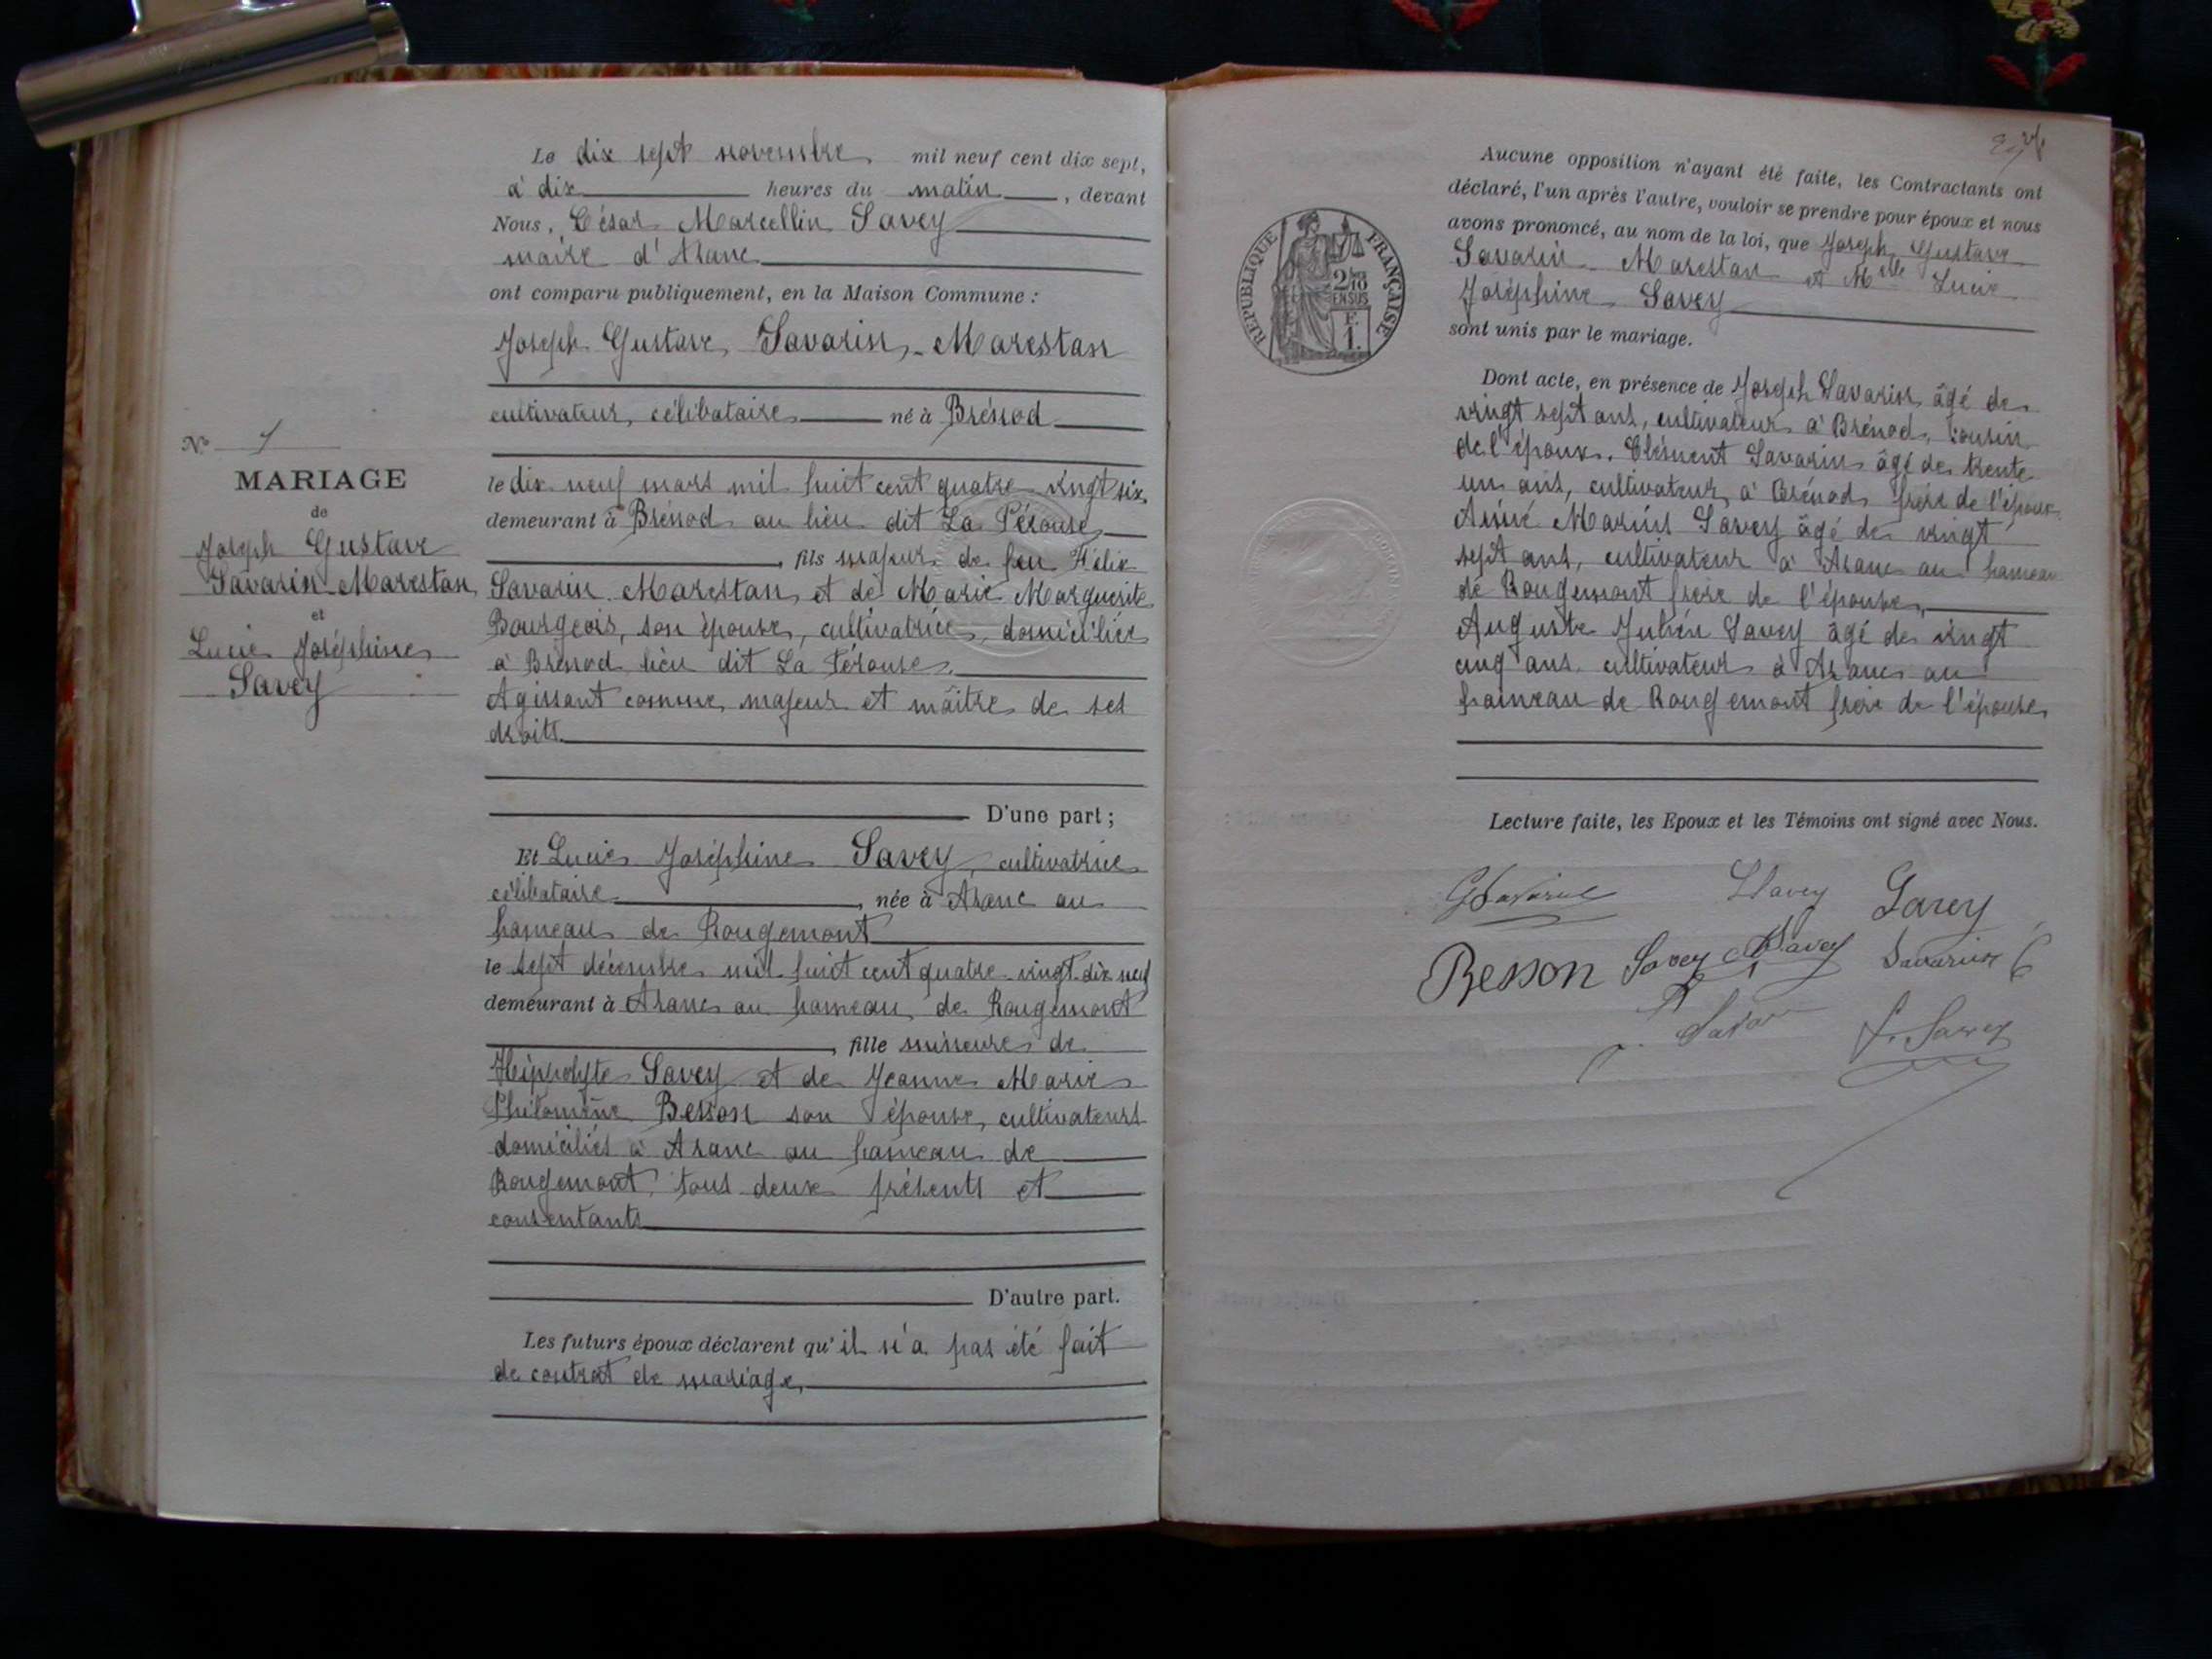 Le dix sept novembre mil neuf cent dix sept,
à dix heures du matin, devant
Nous, César Marcellin Savey
maire d'Aranc
ont comparu publiquement, en la Maison Commune :
Joseph Gustave Savarin-Marestan
cultivateur, célibataire né à Brénod
le dix neuf mars mil huit cent quatre vingt six,
demeurant à Brénod au lieu dit La Pérouse
, fils majeur de feu Félix
Savarin Marestan et de Marie Marguerite
Bourgeois, son épouse, cultivatrice, domiciliée
à Brénod lieu dit La Pérouse.
Agissant comme majeur et maître de ses
droits.
D'une part ;
Et Lucie Joséphine Savey, cultivatrice
célibataire, née à Aranc au
hameau de Rougemont
le sept décembre mil huit cent quatre vingt dix neuf
demeurant à Aranc au hameau de Rougemont
, fille mineure de
Hippolyte Savey et de Jeanne Marie
Philomène Besson son épouse, cultivateurs
domiciliés à Aranc au hameau de
Rougemont, tous deux présents et
consentants
D'autre part.
Les futurs époux déclarent qu'il n'a pas été fait
de contrat de mariage.
N° 1
MARIAGE
de
Joseph Gustave
Savarin-Marestan
et
Lucie Joséphine
Savey
Aucune opposition n'ayant été faite, les Contractants ont
déclaré, l'un après l'autre, vouloir se prendre pour époux et nous
avons prononcé, au nom de la loi, que Joseph Gustave
Savarin-Marestan et Melle Lucie
Joséphine Savey
sont unis par le mariage.
REPUBLIQUE FRANÇAISE
2/10
EN SUS
F.
1.
Dont acte, en présence de Joseph Savarin âgé de
vingt sept ans, cultivateur à Brénod, cousin
de l'époux. Clément Savarin âgé de trente
un ans, cultivateur à Brénod frère de l'époux.
Aimé Marius Savey âgé de vingt
sept ans, cultivateur à Aranc au hameau
de Rougemont frère de l'épouse,
Auguste Julien Savey âgé de vingt
cinq ans cultivateur à Aranc au
hameau de Rougemont frère de l'épouse
Lecture faite, les Epoux et les Témoins ont signé avec Nous.
GSavarin LSavey Savey
Besson Savey Savey Savarin C
J. Savarin J. Savey